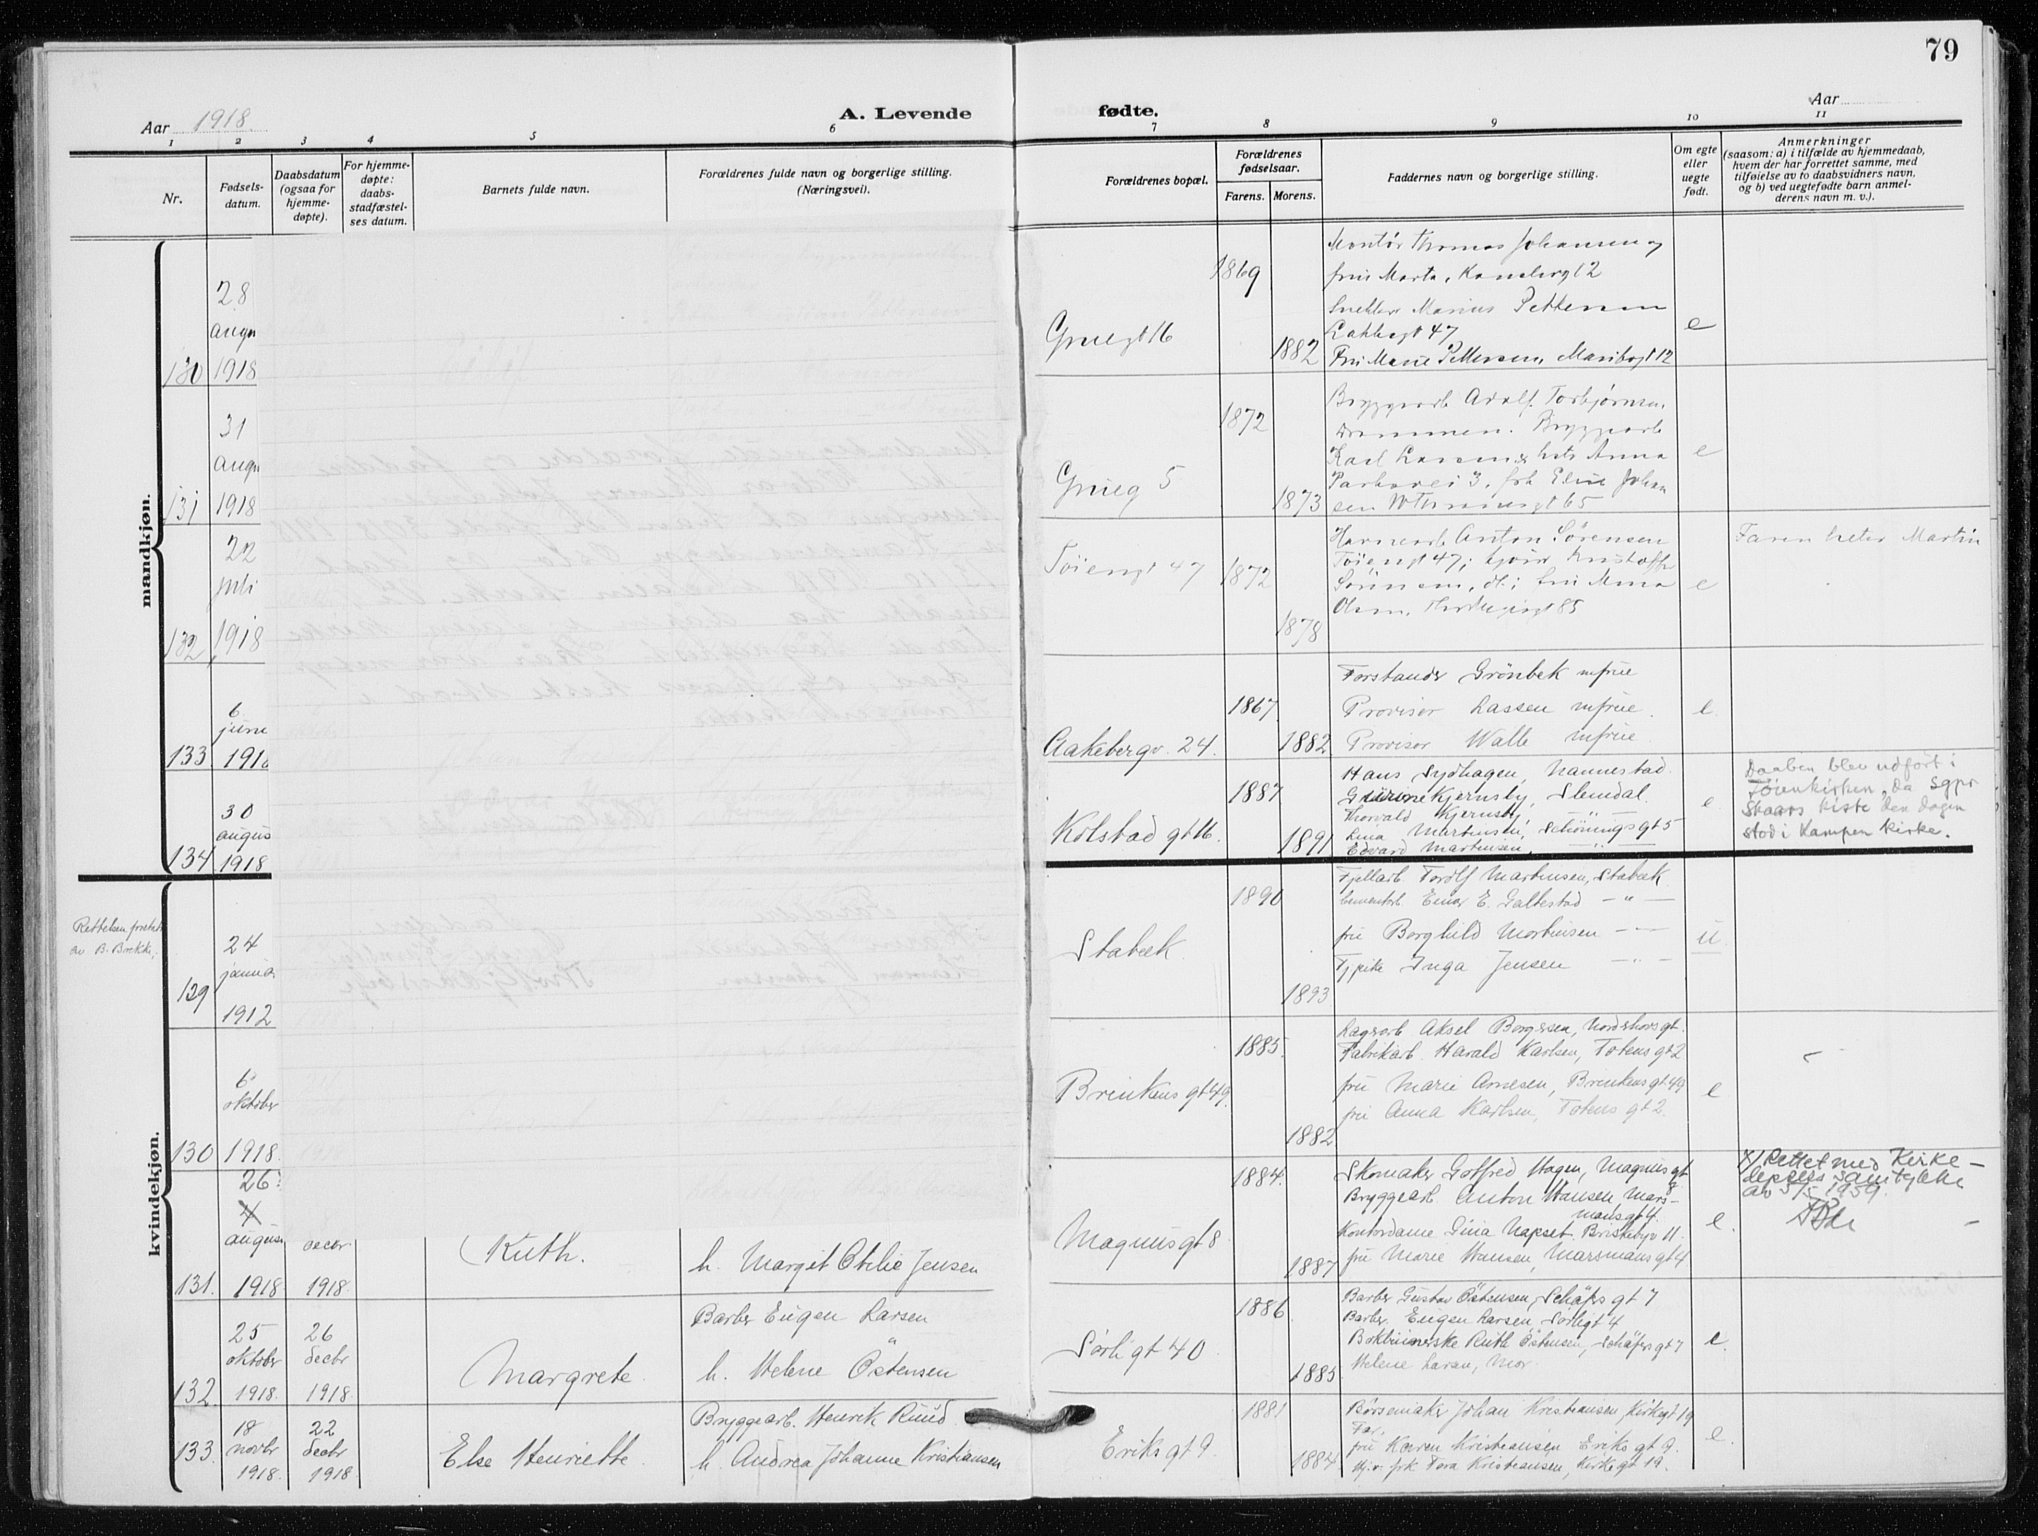 79
Aar 1918.
A. Levende
fødte.
Aar
1 2 3 4 5 6 7 8 9 10 11
Nr.
Fødsels-
datum.
Daabsdatum
(ogsaa for
hjemme-
døpte).
For hjemme-
døpte:
daabs-
stadfæstel-
ses datum.
Barnets fulde navn.
Forældrenes fulde navn og borgerlige stilling.
(Næringsvei).
Forældrenes bopæl.
Forældrenes
fødselsaar.
Farens. Morens.
Faddernes navn og borgerlige stilling.
Om egte
eller
uegte
født.
Anmerkninger
(saasom: a) i tilfælde av hjemmedaab,
hvem der har forrettet samme, med
tilføielse av to daabsvidners navn,
og b) ved uegtefødte barn anmel-
derens navn m. v.).
mandkjøn.
130
28
augu
1918
Gruegt 16
1869
1882
Montør Thomas Johansen og
frue Marta, Kanslergt 2
Snekker Marius Pettersen
Lakkegt 47
Fru Marie Pettersen, Maribogt 12
e
131
31
augu
1918
Grueg 5
1872
1873
Bryggearb Adolf Torbjørnsen,
Drammen. Bryggearb
Karl Larsen &
Parkvei 3, frk Eline Johan
sen
e
132
22
juli
1918
Tøiengt 47
1872
1878
Havnearb Anton Sørensen
Tøiengt 47;
Sørensen, do; fru Anna
Olsen,
e
Faren heter Martin
133
6
june
1918
Aakebergv. 24.
1867
1882
Forstander Grönbek m frue
Provisor Lassen m frue.
Provisor Walle m frue.
e.
134
30
augus
1918
Kolstad gt 16.
1887
1891
Hans Sydhagen, Nannestad.
Gurine Kjernsby, Slemdal.
Thorvald Kjernsby, — " —
Lina Martinsen, Schönings gt 5
Edvard Martinsen, — " —
e
Daaben blev udført i
Tøienkirken, da Sgpr
Skaars kiste den dagen
stod i Kampen kirke.
kvindekjøn.
Rettelsen foretat
av B. Brekke,
129
24
janua
1912
Stabæk
1890
1893
Fjellarb. Torolf Martinsen, Stabæk
Cementarb. Einar E. Galtestad — " —
fru Borghild Mortinsen — " —
Frøken Inga Jensen — " —
u.
130
6
oktober
1918.
Brinkens gt 49.
1885.
1882
Lagerarb Aksel Borgersen, Nordshovsgt.
Fabrikarb. Harald Karlsen, Totens gt 2
fru Marie Arnesen, Brinkens gt 49
fru Anna Karlsen, Totens gt 2.
e
131.
26
augus
1918
decbr
1918.
Ruth.
h. Margit Otilie Jensen
Magnus gt 8
1884.
1887
Skomaker Gotfred Hagen, Magnus gt
8
Bryggearb. Anton Hansen, Mars-
mans gt 4.
Kontordame Gina Napset. Bristebyv 11.
fru Marie Hansen, Marsmans gt 4
e.
X) Rettet med Kirke-
deptets samtykke
av 5/5 1959.
132.
25
oktober
1918.
26
decbr
1918
Margrete.
Barber Eugen Larsen
h. Helene Östensen
Sørli gt 40.
1886
1885
Barber Gustav Östensen, Schäfers gt 7
Barber Eugen Larsen, Sørligt 4
Bokbinderske Ruth Östensen, Schäfers gt 7
Helene Larsen, Mor.
e.
133.
18
novbr
1918.
22
decbr
1918
Else Henriette
Bryggearb. Henrik Ruud
h. Andrea Johanne Kristiansen
Eriks gt 9.
1881
1884
Børsemaker Johan Kristiansen, Kirkegt 19
Far,
fru Karen Kristiansen Eriks gt 9.
frk Tora Kristiansen, Kirke gt 19.
e.